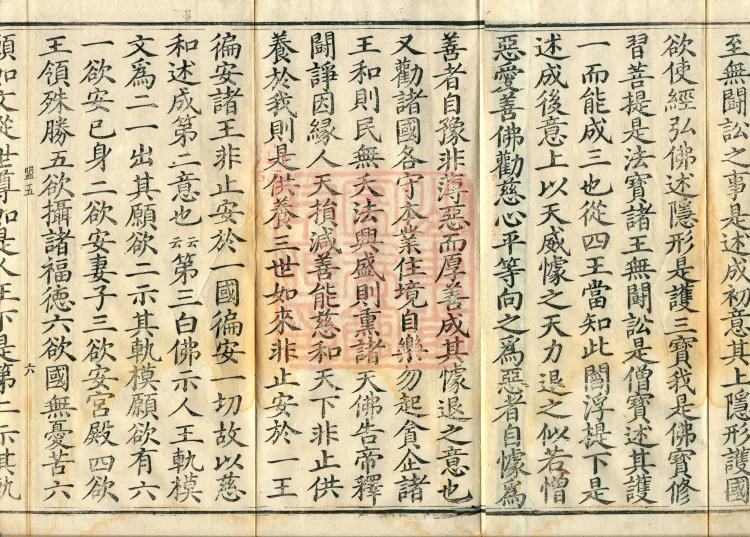 至無鬪訟之事是述成初意其上隱形護國
欲使經弘佛述隱形是護三寶我是佛寶修
習菩提是法寶諸王無鬪訟是僧寶述其護
一而能成三也從四王當知此閻浮提下是
述成後意上以天威懅之天力退之似若憎
惡愛善佛勸慈心平等向之為惡者自懅為
善者自豫非薄惡而厚善成其懅退之意也
又勸諸國各守本業住境自樂勿起貪企諸
王和則民無夭法興盛則熏諸天佛告帝釋
鬪諍因緣人天損減善能慈和天下非止供
養於我則是供養三世如來非止安於一王
徧安諸王非止安於一國徧安一切故以慈
和述成第二意也云云第三白佛示人王軌模
文為二一出其願欲二示其軌模願欲有六
一欲安已身二欲安妻子三欲安宮殿四欲
王領殊勝五欲攝諸福德六欲國無憂苦六
盟五
六
願如文從世尊如是人王下是第二示其軌